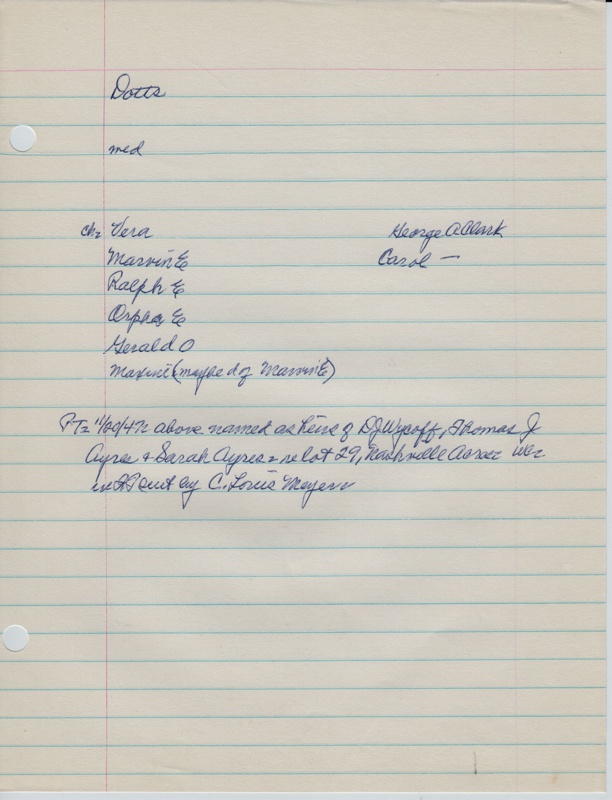 Dotts
med
ch= Vera George A Clark
Marvin E Carol —
Ralph E
Orpha E
Gerald O
Maxine (maybe d of Marvin E)
PT= 11/20/47= above named as heirs of DJ Wycoff, Thomas J
Ayres & Sarah Ayres = re lot 29, Nashville Acres
suit by C. Louis Meyer